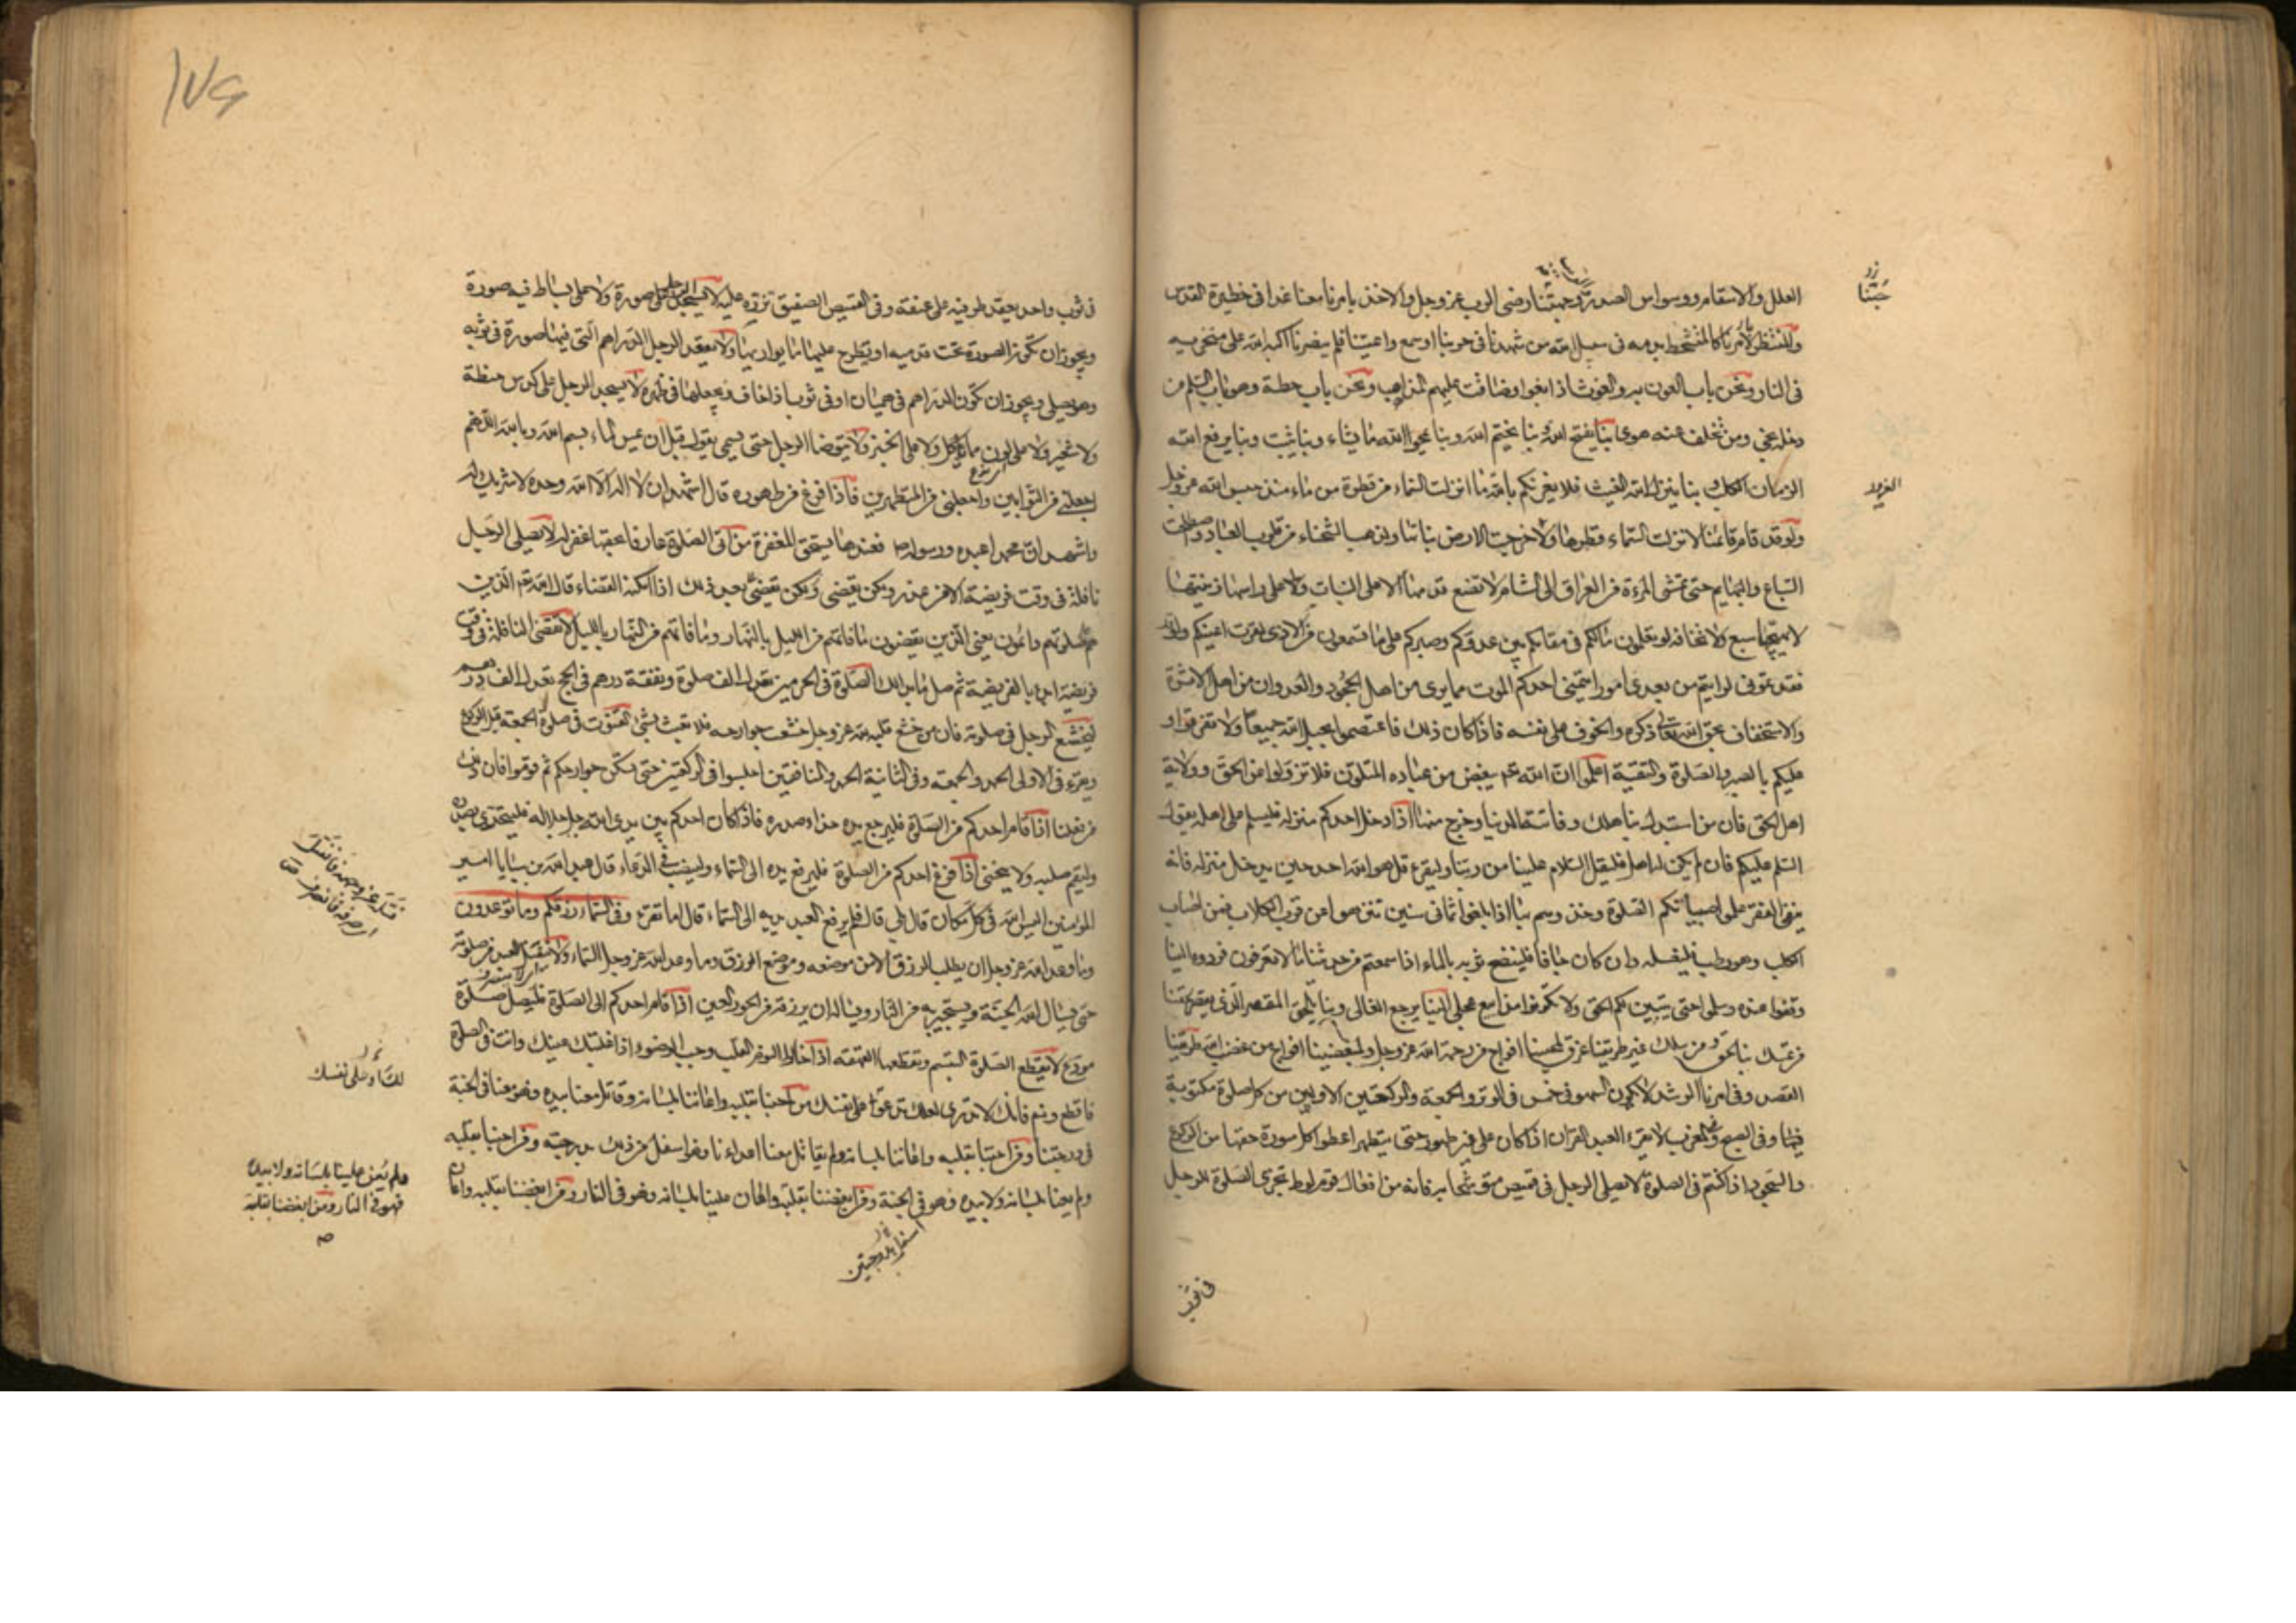 العلل والاسقام ووسواس الصدور وحبتنا رضى الرب عز وجل والاخذ بامرنا معنا غدا فى خطيرة القدس
والمنتظر لأمرنا كالمتشحط بدمه فى سبيل الله من شهدنا فى حربنا او سمع واعيتنا فلم ينصرنا اكبه الله على منخريه
فى النار ونحن باب الغوث اذا بغوا وضاقت عليهم المذاهب ونحن باب حطة وهو باب السلم من
دخله نجى ومن تخلف عنه هوى بنا يفتح الله وبنا يختم الله وبنا يمحوا الله ما يشاء وبنا يثبت وبنا يرفع الله
الزمان الكلب وبنا ينزل الله الغيث فلا يغرنكم بالله ما انزلت السماء من قطرة من ماء منذ حبس الله عز وجل
ولو قد قام قائمنا لانزلت السماء قطرها ولاخرجت الارض نباتها ولذهب الشحناء من قلوب العباد واصطلحت
السباع والبهايم حتى تمشى المرءة من العراق الى الشام لا تضع قدمها الا على النبات وعلى راسها زينتها
لا يهيجها سبع ولا تخافه لو تعلمون مالكم فى مقامكم بين عدوكم وصبركم على ما تسمعون من الاذى لقرت اعينكم ولو
فقدتمونى لرايتم من بعدى امورا يتمنى احدكم الموت مما يرى من اهل الجحود والعدوان من اهل الاثرة
والاستخفاف بحق الله تعالى ذكره والخوف على نفسه فاذا كان ذلك فاعتصموا بحبل الله جميعا ولا تفرقوا و
عليكم بالصبر والصلوة والتقية اعلموا ان الله يبغض من عباده المتلون فلا تزولوا عن الحق وولاية
اهل الحق فان من استبدل بنا هلك وفاتته الدنيا وخرج منها اذا دخل احدكم منزله فليسلم على اهله يقول
السلم عليكم فان لم يكن له اهل فليقل السلام علينا من ربنا وليقرء قل هو الله احد حين يدخل منزله فانه
ينفى الفقر علموا صبيانكم الصلوة وخذوهم بها اذا بلغوا ثمانى سنين تنزهوا عن قرب الكلاب فمن اصاب
الكلب وهو رطب فليغسله وان كان جافا فلينضح ثوبه بالماء اذا سمعتم من حديثنا ما لا تعرفون فردوه الينا
وقفوا عنده وسلموا حتى يتبين لكم الحق ولا تكونوا مذاييع عجلى الينا يرجع الغالى وبنا يلحق المقصر الذى يقصر بحقنا
من تمسك بنا لحق ومن سلك غير طريقنا غرق لمحبينا افواج من رحمة الله عز وجل ولمبغضينا افواج من غضب الله طريقنا
القصد وفى امرنا الرشد لا يكون السهو فى خمس فى الوتر والجمعة والركعتين الاوليين من كل صلوة مكتوبة
وفى الصبح وفى المغرب لا يقرء العبد القران اذا كان على غير طهور حتى يتطهر اعطوا كل سورة حقها من الركوع
والسجود اذا كنتم فى الصلوة لا يصلى الرجل فى قميص متوشحا به فانه من افعال قوم لوط تجزى الصلوة للرجل
حبتنا
فى ثوب
١٧٤
فى ثوب واحد يعقد طرفيه على عنقه وفى القميص الصفيق يزره عليه لا يسجد الرجل على صورة ولا على بساط فيه صورة
ويجوز ان تكون الصورة تحت قدميه او يطرح عليها ما يواريها ولا يعقد الرجل الدراهم التى فيها صورة فى ثوبه
وهو يصلى ويجوز ان تكون الدراهم فى هميان او فى ثوب اذا خاف ويجعلها فى ظهره لا يسجد الرجل على كدس حنطة
ولا شعير ولا على لون مما يؤكل ولا على الخبز ولا يتوضا الرجل حتى يسمى يقول قبل ان يمس الماء بسم الله وبالله اللهم
اجعلنى من التوابين واجعلنى من المتطهرين فاذا فرغ من طهوره قال اشهد ان لا اله الا الله وحده لا شريك له
واشهد ان محمدا عبده ورسوله فعندها يستحق المغفرة من اتى الصلوة عارفا بحقها غفر له لا يصلى الرجل
نافلة فى وقت فريضة الا من عذر ولكن يقضى بعد ذلك اذا امكنه القضاء قال الله الذين
هم على صلوتهم دائمون يعنى الذين يقضون ما فاتهم من الليل بالنهار وما فاتهم من النهار بالليل لا تقضى النافلة فى وقت
فريضة ابدا بالفريضة ثم صل ما بدا لك الصلوة فى الحرمين تعدل الف صلوة ونفقة درهم فى الحج تعدل الف درهم
ليخشع الرجل فى صلوته فان من خشع قلبه لله عز وجل خشعت جوارحه فلا يعبث بشئ القنوت فى صلوة الجمعة قبل الركوع
ويقرء فى الاولى الحمد والجمعة وفى الثانية الحمد والمنافقين اجلسوا فى الركعتين حتى تسكن جوارحكم ثم قوموا فان ذلك
من فعلنا اذا قام احدكم من الصلوة فليرجع يده حذاء صدره فاذا كان احدكم بين يدى الله جل جلاله فليتحرى بصدره
وليقم صلبه ولا ينحنى اذا فرغ احدكم من الصلوة فليرفع يده الى السماء ولينصب فى الدعاء قال عبد الله بن سبا يا امير
المؤمنين اليس الله فى كل مكان قال بلى قال فلم يرفع العبد يديه الى السماء قال اما تقرء وفى السماء رزقكم وما توعدون
فمن اين يطلب الرزق الا من موضعه وموضع الرزق وما وعد الله عز وجل السماء ولا ينفتل العبد من صلوته
حتى يسال الله الجنة ويستجير به من النار ويساله ان يزوجه من الحور العين اذا قام احدكم الى الصلوة فليصل صلوة
مودع لا يقطع الصلوة التبسم وتقطعها القهقهه اذا خالط النوم القلب وجب الوضوء اذا غلبتك عينك وانت فى الصلوة
فاقطع ونم فانك لا تدرى لعلك تدعوا على نفسك من احبنا بقلبه واعاننا بلسانه وقاتل معنا بيده فهو معنا فى الجنة
فى درجتنا ومن احبنا بقلبه واعاننا بلسانه ولم يقاتل معنا اعداءنا فهو اسفل من ذلك بدرجته ومن احبنا بقلبه
ولم يعنا بلسانه ولا بيده فهو فى الجنة ومن ابغضنا بقلبه واعان علينا بلسانه فهو فى النار ومن ابغضنا بقلبه واعان
اسفل بدرجتين
لك او على نفسك
ولم يعن علينا بلسانه ولا بيده
فهو فى النار ومن ابغضنا بقلبه